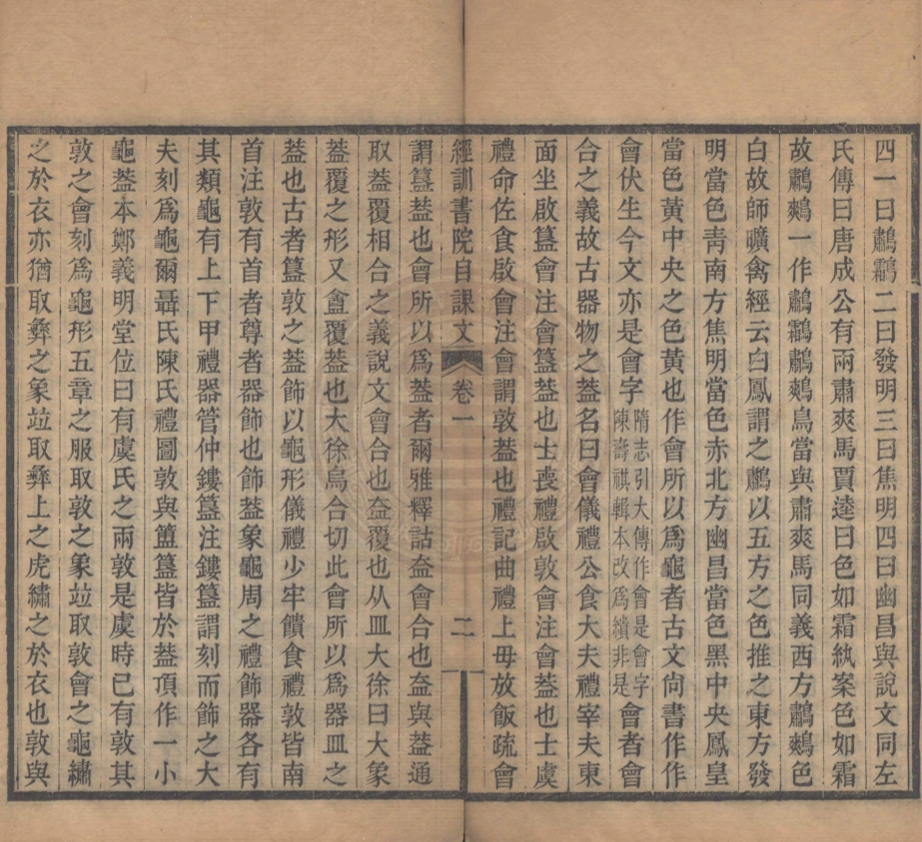 四一曰鷫鷞二曰發明三曰焦明四曰幽昌與說文同左
氏傳曰唐成公有兩肅爽馬賈逵曰色如霜紈案色如霜
故鷫鷞一作鷫鸘鷫鷞鳥當與肅爽馬同義西方鷫鷞色
白故師曠禽經云白鳳謂之鷫以五方之色推之東方發
明當色靑南方焦明當色赤北方幽昌當色黑中央鳳皇
當色黃中央之色黃也作會所以爲龜者古文尙書作作
會伏生今文亦是會字隋志引大傳作會是會字陳壽祺輯本改爲繢非是會者會
合之義故古器物之葢名曰會儀禮公食大夫禮宰夫東
面坐啟簋會注會簋葢也士喪禮啟敦會注會葢也士虞
禮命佐食啟會注會謂敦葢也禮記曲禮上毋放飯疏會
經訓書院自課文 卷一 二
謂簋葢也會所以爲葢者爾雅釋詁盇會合也盇與葢通
取葢覆相合之義說文會合也盇覆也从皿大徐曰大象
葢覆之形又盦覆葢也大徐烏合切此會所以爲器皿之
葢也古者簋敦之葢飾以龜形儀禮少牢饋食禮敦皆南
首注敦有首者尊者器飾也飾葢象龜周之禮飾器各有
其類龜有上下甲禮器管仲鏤簋注鏤簋謂刻而飾之大
夫刻爲龜爾聶氏陳氏禮圖敦與簠簋皆於葢頂作一小
龜葢本鄭義明堂位曰有虞氏之兩敦是虞時已有敦其
敦之會刻爲龜形五章之服取敦之象竝取敦會之龜繡
之於衣亦猶取彝之象竝取彝上之虎繡之於衣也敦與